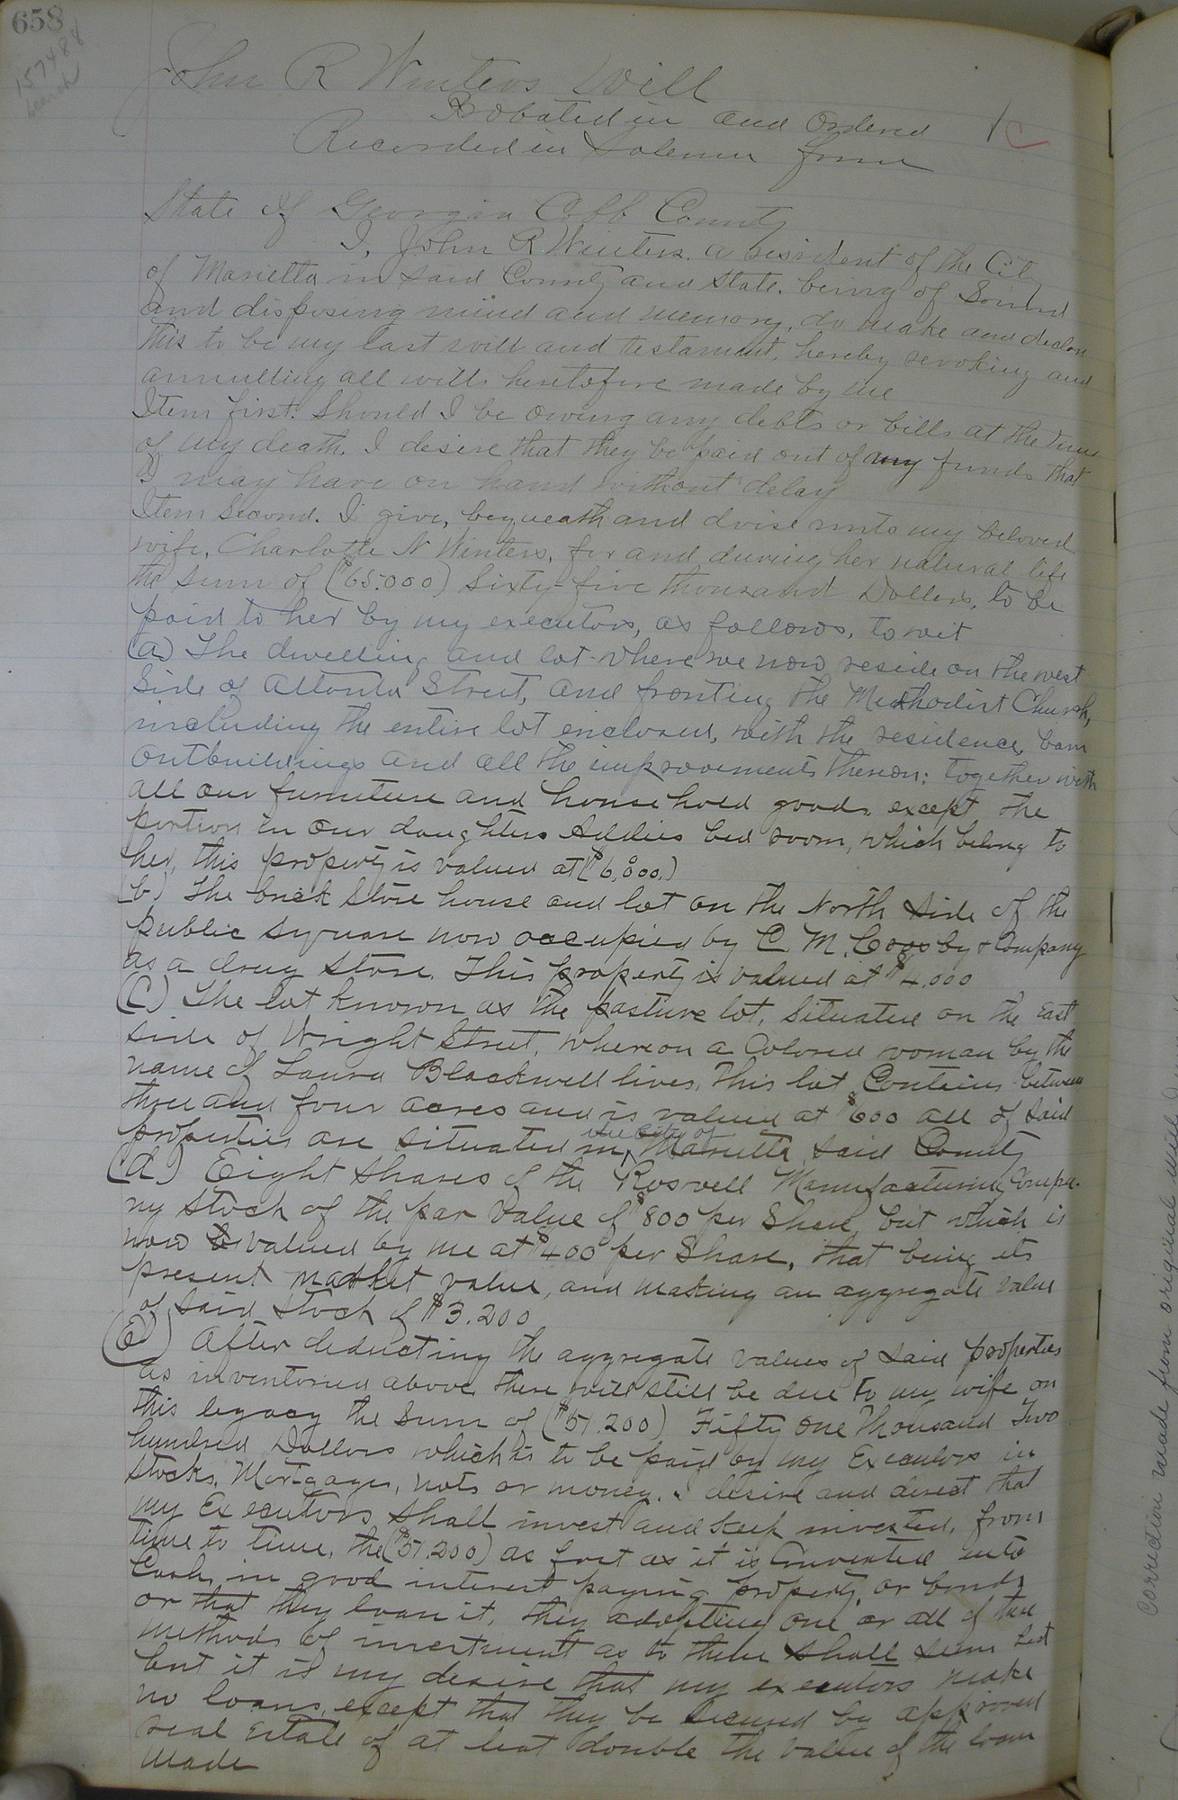 658
157488
John R Winters Will
Probated in and Ordered
Recorded in Solemn form
State of Georgia Cobb County
I, John R Winters. a resident of the City
of Marietta in said County and State. being of Sound
and disposing mind and memory, do make and declare
this to be my last will and testament, hereby revoking and
annulling all wills heretofore made by me
Item first. Should I be owing any debts or bills at the time
of my death. I desire that they be paid out of any funds that
I may have on hand without delay
Item Second. I give, bequeath and divise unto my beloved
wife, Charlotte N Winters, for and during her natural life
the sum of ($65.000) Sixty-five thousand Dollars, to be
paid to her by my executors, as follows, to wit
(a) The dwelling and lot where we now reside on the west
Side of Atlanta Street, and fronting the Methodist Church,
including the entire lot enclosed, with the residence, barn
outbuildings and all the improvements thereon: together with
all our furniture and household goods except the
portion in our daughters Addies bed room, which belong to
her, this property is valued at ($6,000.)
b) The brick Store house and lot on the North side of the
public square now occupied by C. M. Crosby & Company
as a drug store. This property is valued at $4,000
(C) The lot known as the pasture lot, Situated on the East
side of Wright Street, whereon a Colored woman by the
name of Laura Blackwell lives, This lot Contains between
three and four acres and is valued at $600 all of said
properties are situated in the City of Marietta said County
(d) Eight Shares of the Roswell Manufacturing Compa-
ny Stock of the par value of $800 per Share, but which is
now valued by me at $400 per Share, that being its
present market value, and making an aggregate value
of said stock of $3.200
(E) After deducting the aggregate values of said properties
as inventoried above there will still be due to my wife on
this legacy the Sum of ($51.200) Fifty one Thousand Two
hundred Dollars which is to be paid by my Executors in
Stocks, Mortgages, nots or money. I desire and direct that
my Executors shall invest and keep invested, from
time to time, the ($51.200) as fast as it is Converted into
Cash, in good interest paying property, or bonds
or that they loan it, they adopting one or all of these
methods of investment as to them shall seem best
but it is my desire that my executors make
no loans, except that they be secured by approved
real Estate of at least double the value of the loan
made
Correction made from original will